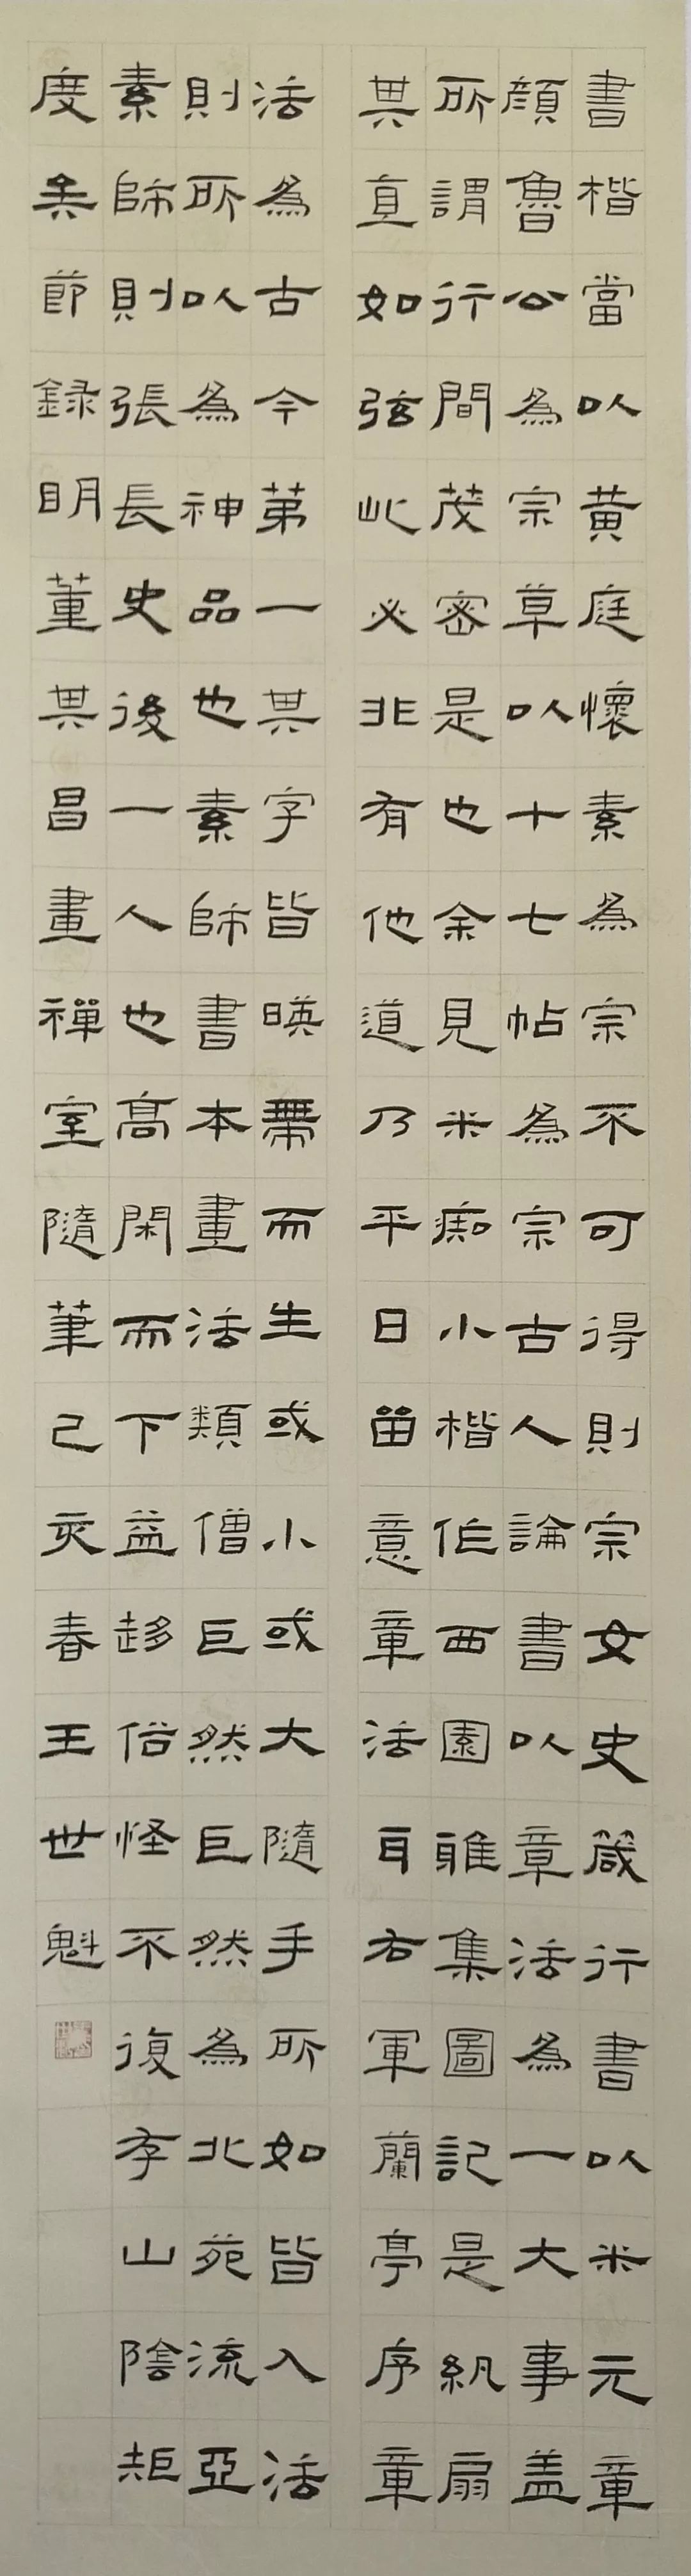 書楷當以黄庭懷素為宗不可得則宗女史箴行書以米元章
顔魯公為宗草以十七帖為宗古人論書以章法為一大事盖
所謂行間茂密是也余見米痴小楷作西園雅集圖記是紈扇
其直如弦此必非有他道乃平日留意章法耳右軍蘭亭序章
法為古今第一其字皆暎帶而生或小或大隨手所如皆入法
則所以為神品也素師書本畫法類僧巨然巨然為北苑流亞
素師則張長史後一人也高閑而下益趍俗怪不復存山陰矩
度矣節録明董其昌畫禪室隨筆己亥春王世魁